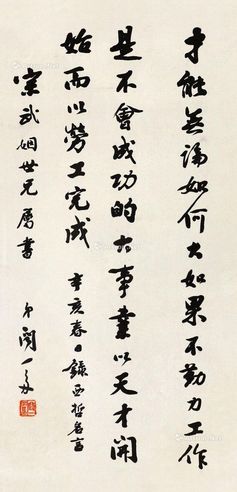 才能無論如何大如果不勤力工作
是不會成功的大事業以天才開
始而以勞工完成 辛亥春日錄西哲名言
武姻世兄屬書 弟